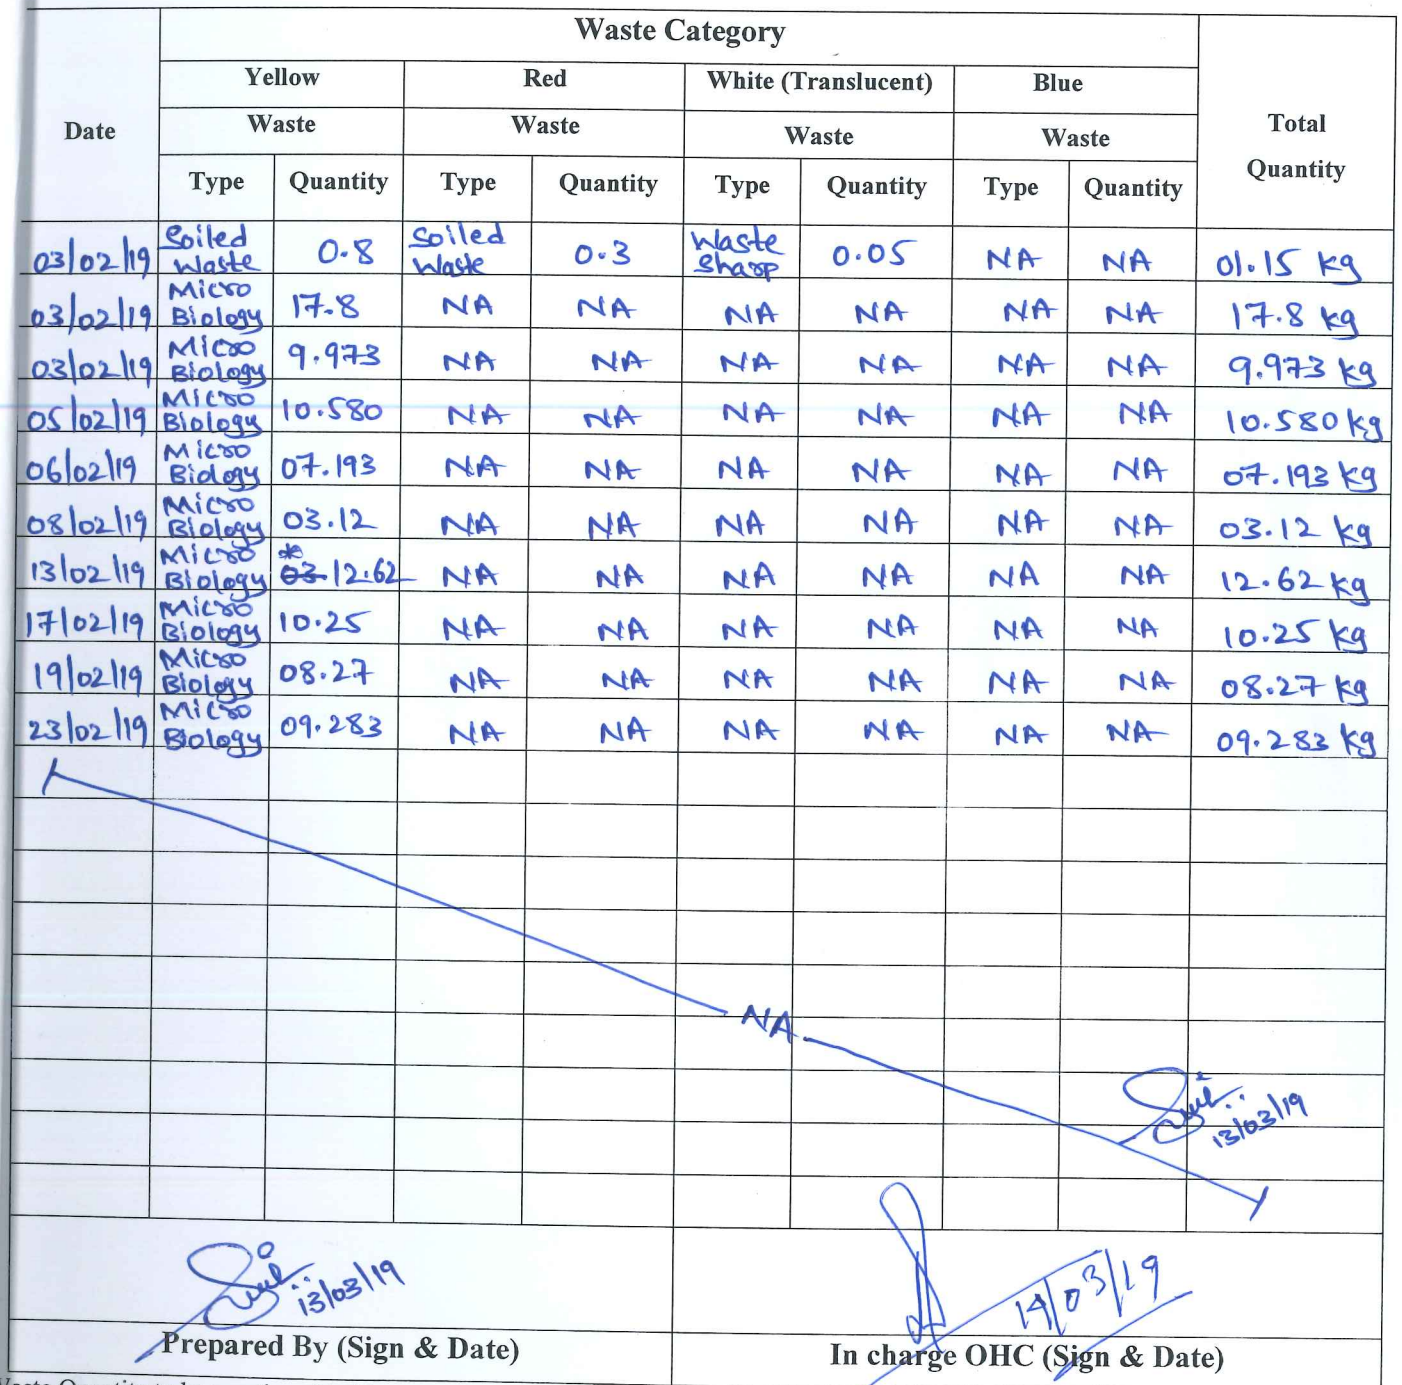 Waste Category
Yellow Red White (Translucent) Blue
Date Waste Waste Waste Waste Total Quantity
Type Quantity Type Quantity Type Quantity Type Quantity
03/02/19 Soiled Waste 0.8 Soiled Waste 0.3 Waste Sharp 0.05 NA NA 01.15 kg
03/02/19 Micro Biology 17.8 NA NA NA NA NA NA 17.8 kg
03/02/19 Micro Biology 9.973 NA NA NA NA NA NA 9.973 kg
05/02/19 Micro Biology 10.580 NA NA NA NA NA NA 10.580 kg
06/02/19 Micro Biology 07.193 NA NA NA NA NA NA 07.193 kg
08/02/19 Micro Biology 03.12 NA NA NA NA NA NA 03.12 kg
13/02/19 Micro Biology * 03 12.62 NA NA NA NA NA NA 12.62 kg
17/02/19 Micro Biology 10.25 NA NA NA NA NA NA 10.25 kg
19/02/19 Micro Biology 08.27 NA NA NA NA NA NA 08.27 kg
23/02/19 Micro Biology 09.283 NA NA NA NA NA NA 09.283 kg
NA
13/03/19
13/03/19 14/03/19
Prepared By (Sign & Date) In charge OHC (Sign & Date)